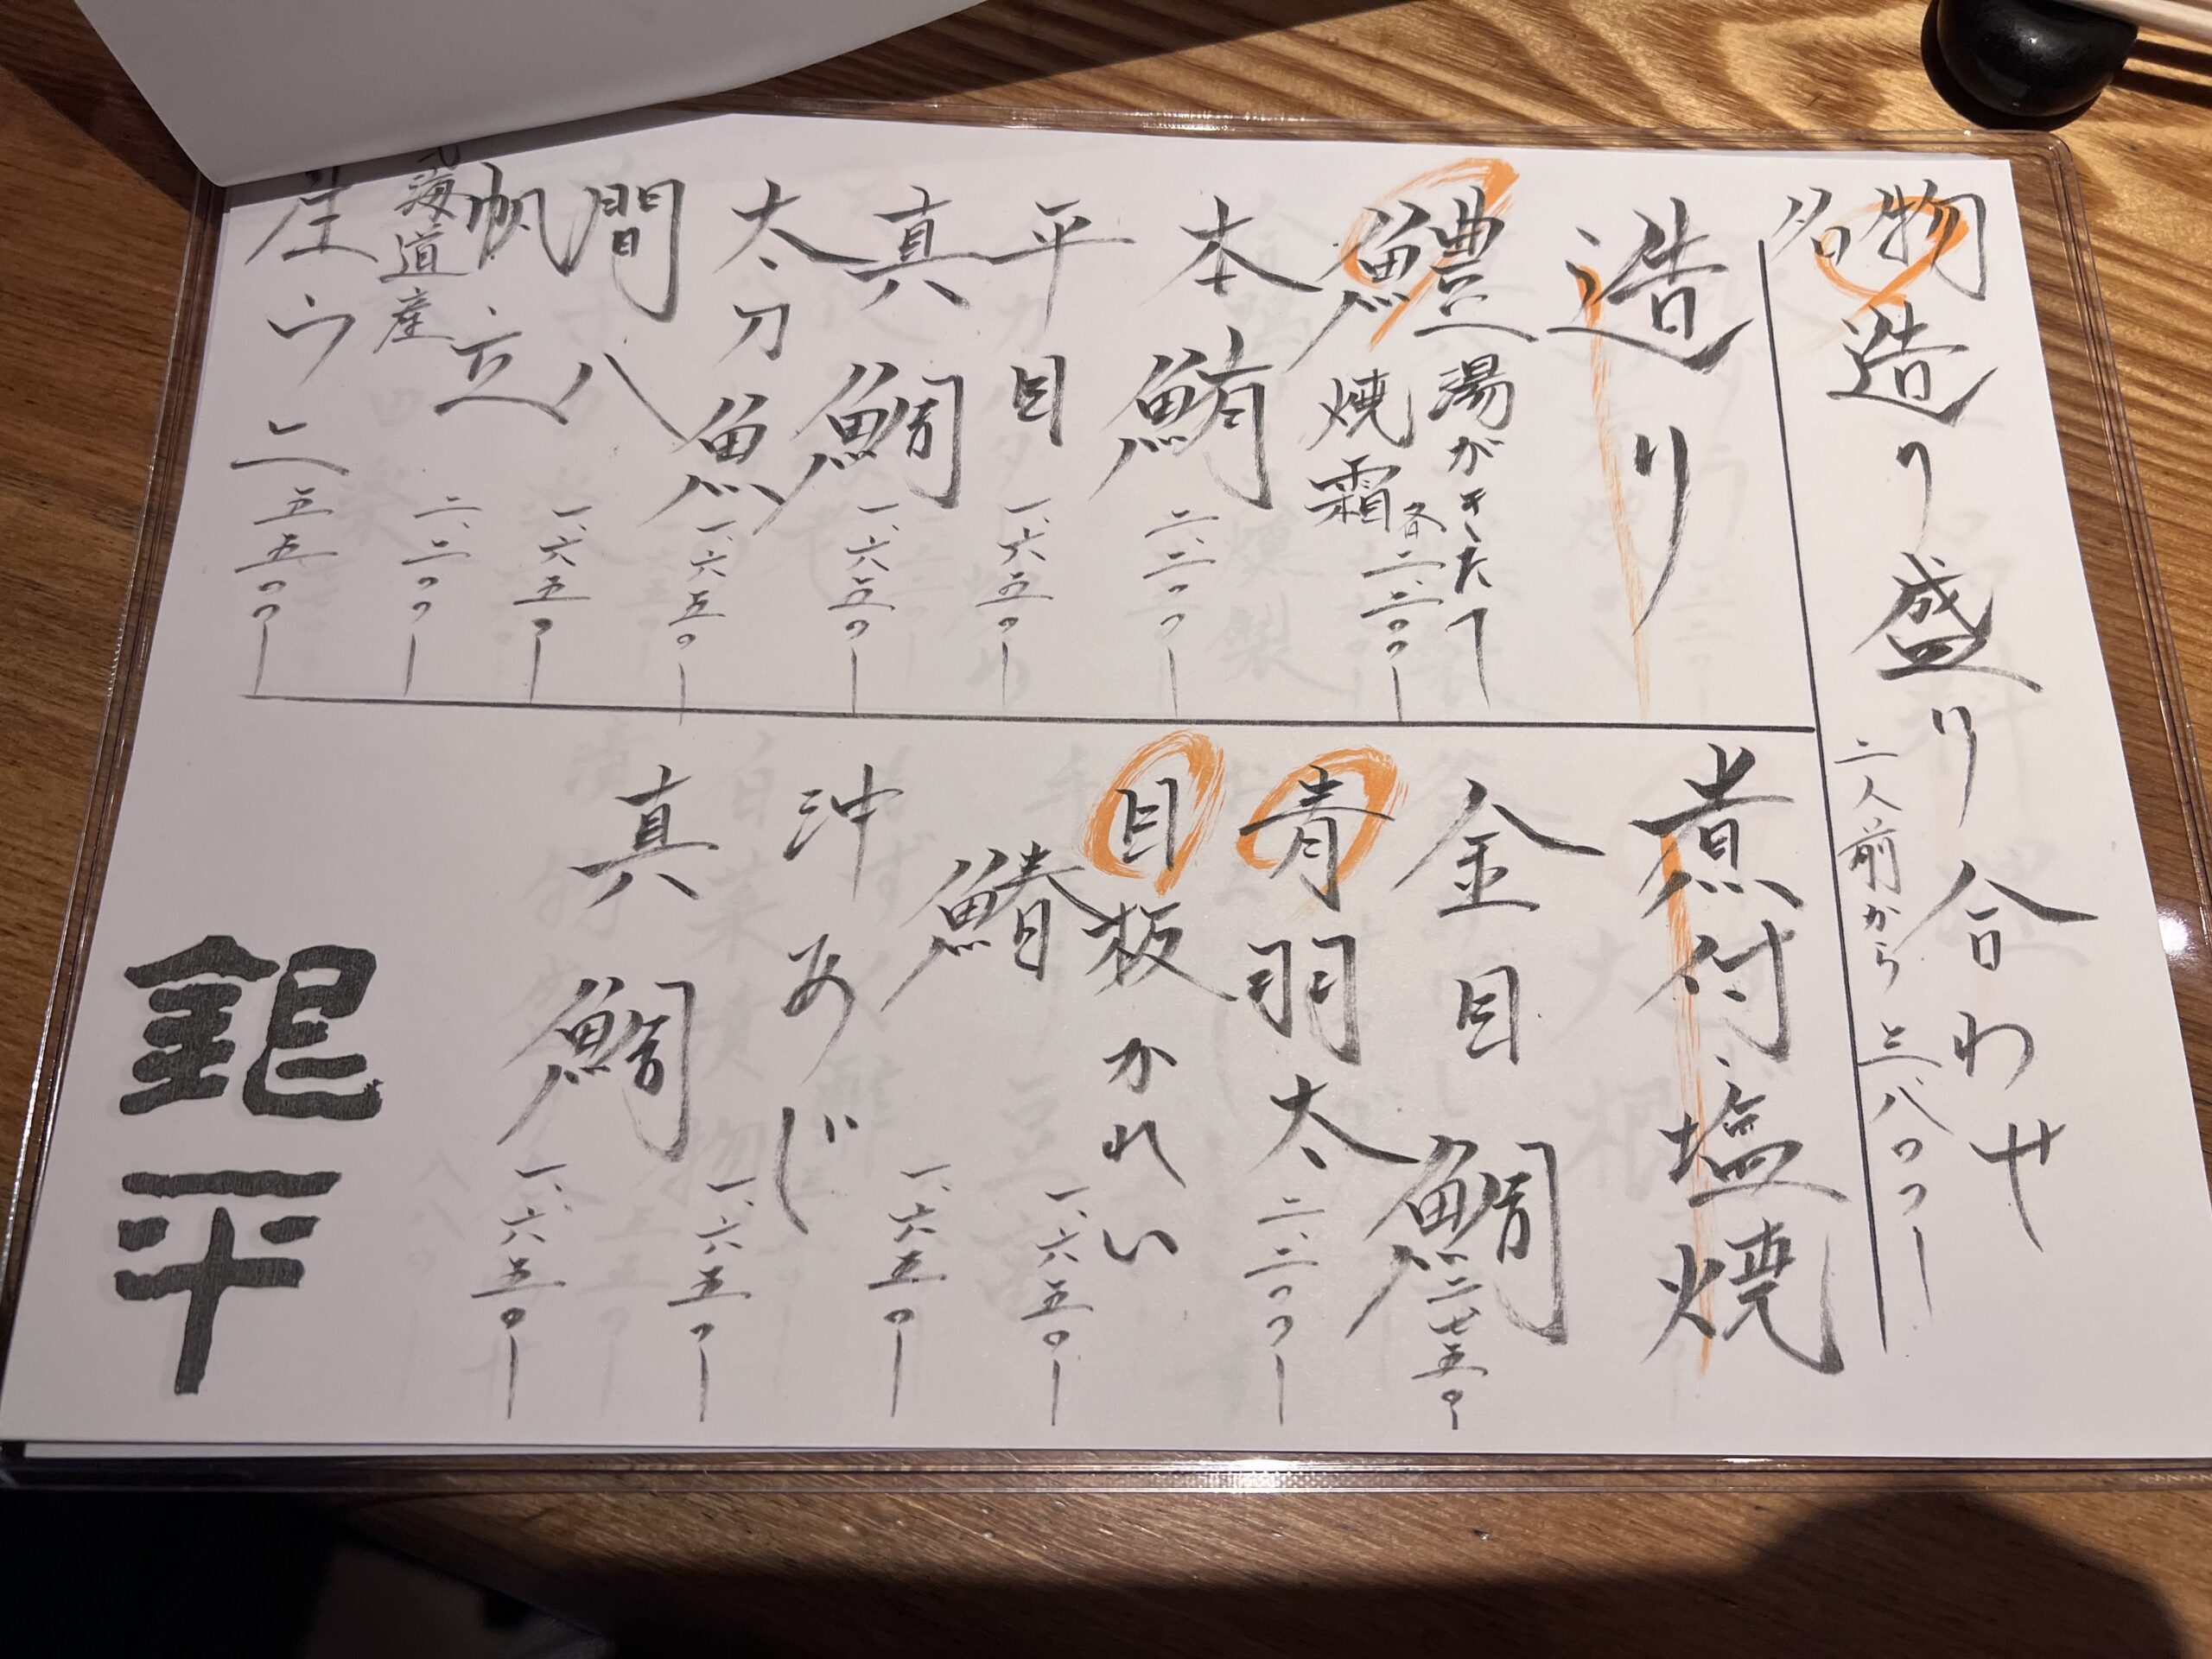 名物
造り盛り合わせ
二人前から 三、八〇〇ー
造り
鱧 湯がきたて
焼霜 各二、二〇〇ー
本鮪 二、二〇〇ー
平目 一、六五〇ー
真鯛 一、六五〇ー
太刀魚 一、六五〇ー
間八 一、六五〇ー
帆立 二、二〇〇ー
海道産
生ウニ 五五〇〇ー
煮付・塩焼
金目鯛 二七五〇ー
青羽太 二、二〇〇ー
目板かれい 一、六五〇ー
鰆 一、六五〇ー
沖あじ 一、六五〇ー
真鯛 一、六五〇ー
銀平